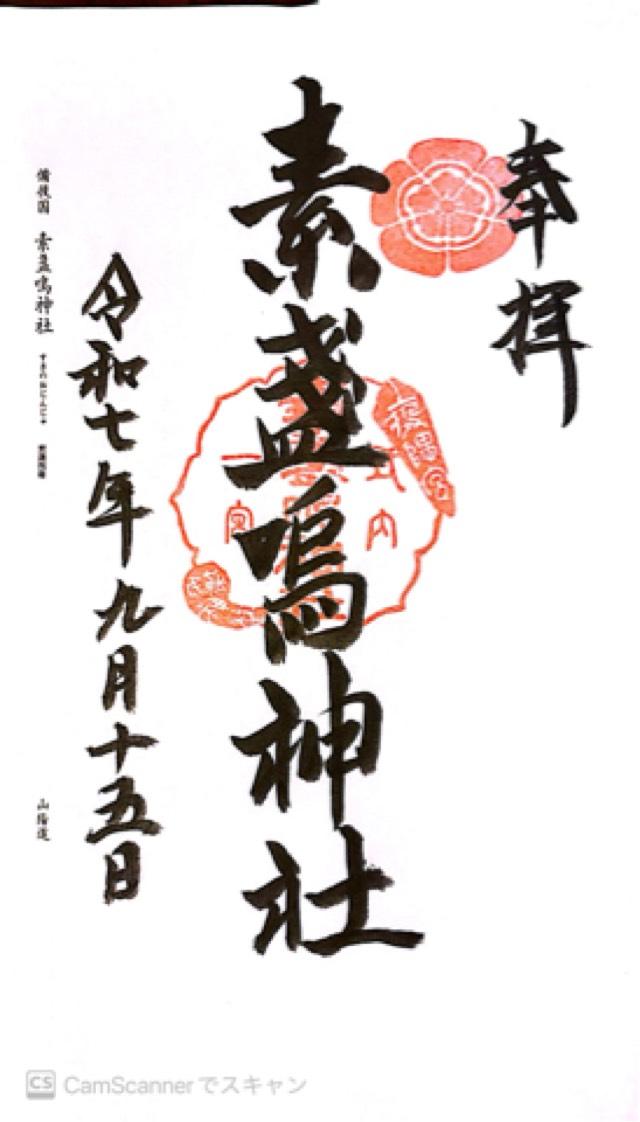 奉拝
素盞嗚神社
疫隅宮
式内
一宮
令和七年九月十五日
備後国 素盞嗚神社 すさのおじんじゃ
山陽道
CS CamScannerでスキャン